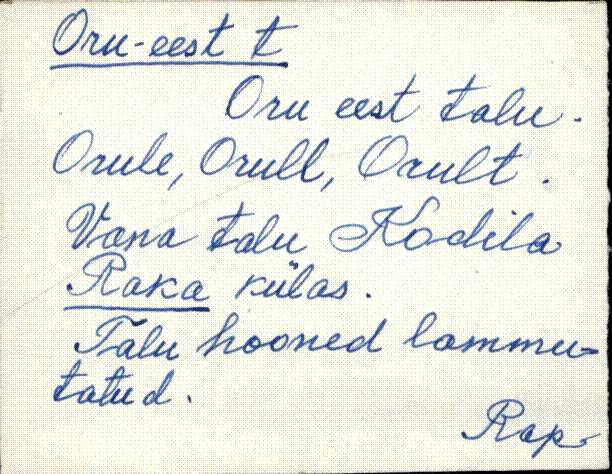 Oru-eest t
Oru eest talu.
Orule, Orull, Orult.
Vana talu Kodila
Raka külas.
Talu hooned lammu-
tatud.
Rap.